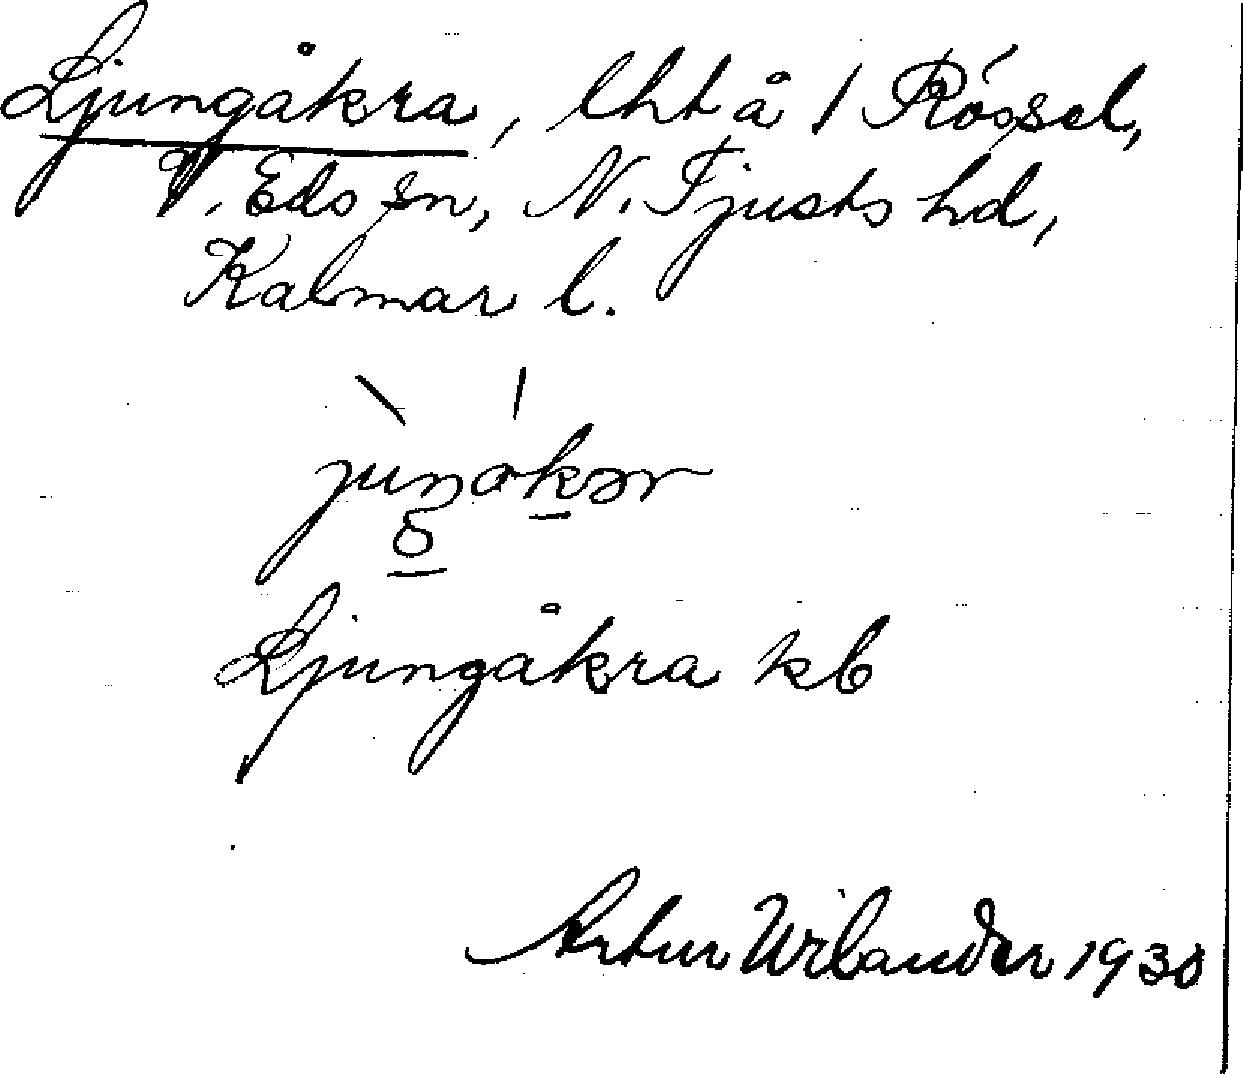 Ljungåkra, lht å 1 Rössel,
V. Eds sn, N. Tjusts hd,
Kalmar l.
Ljungåkra kb
Artur Wilander 1930